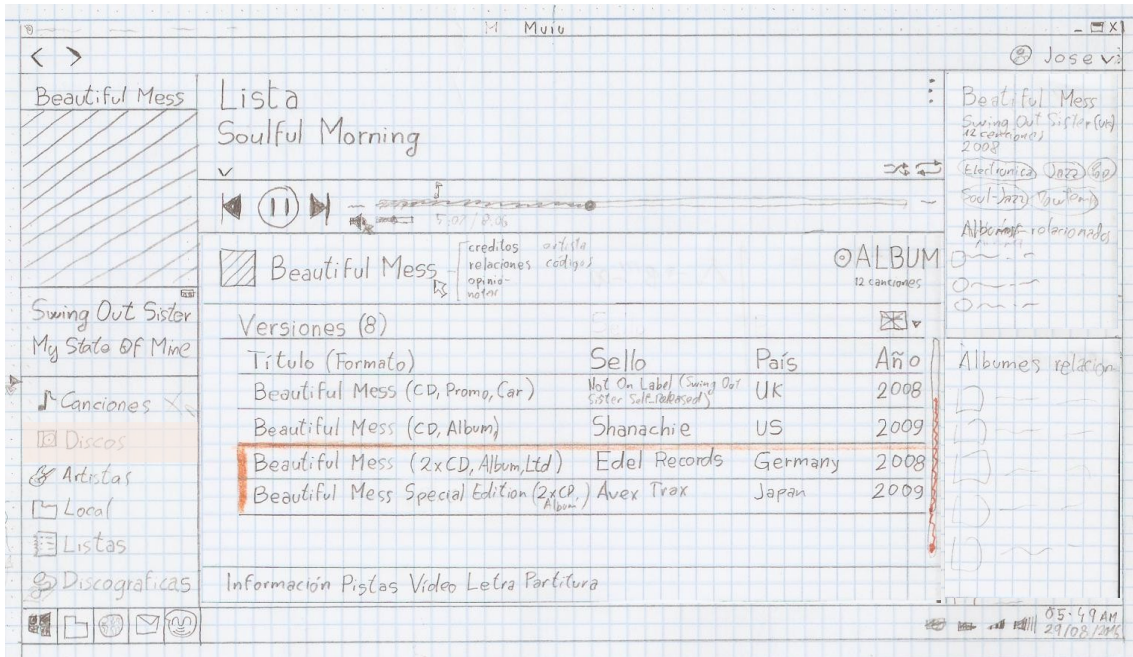 Muiu
Jose
Beautiful Mess
Swing Out Sister
My State Of Mine
Canciones
Discos
Artistas
Local
Listas
Discograficas
Lista
Soulful Morning
5:07 / 8:06
Beautiful Mess
creditos artista
relaciones codigos
opinio-
notas
ALBUM
12 canciones
Versiones (8)
Título (Formato) Sello País Año
Beautiful Mess (CD, Promo, Car) Not On Label (Swing Out Sister Self-Released) UK 2008
Beautiful Mess (CD, Album) Shanachie US 2009
Beautiful Mess (2xCD, Album, Ltd) Edel Records Germany 2008
Beautiful Mess Special Edition (2xCD, Album) Avex Trax Japan 2009
Información Pistas Vídeo Letra Partitura
Beatiful Mess
Swing Out Sister (UK)
12 canciones
2008
Electronica Jazz
Soul-Jazz
relacionados
Álbumes relacion
05:49 AM
29/08/